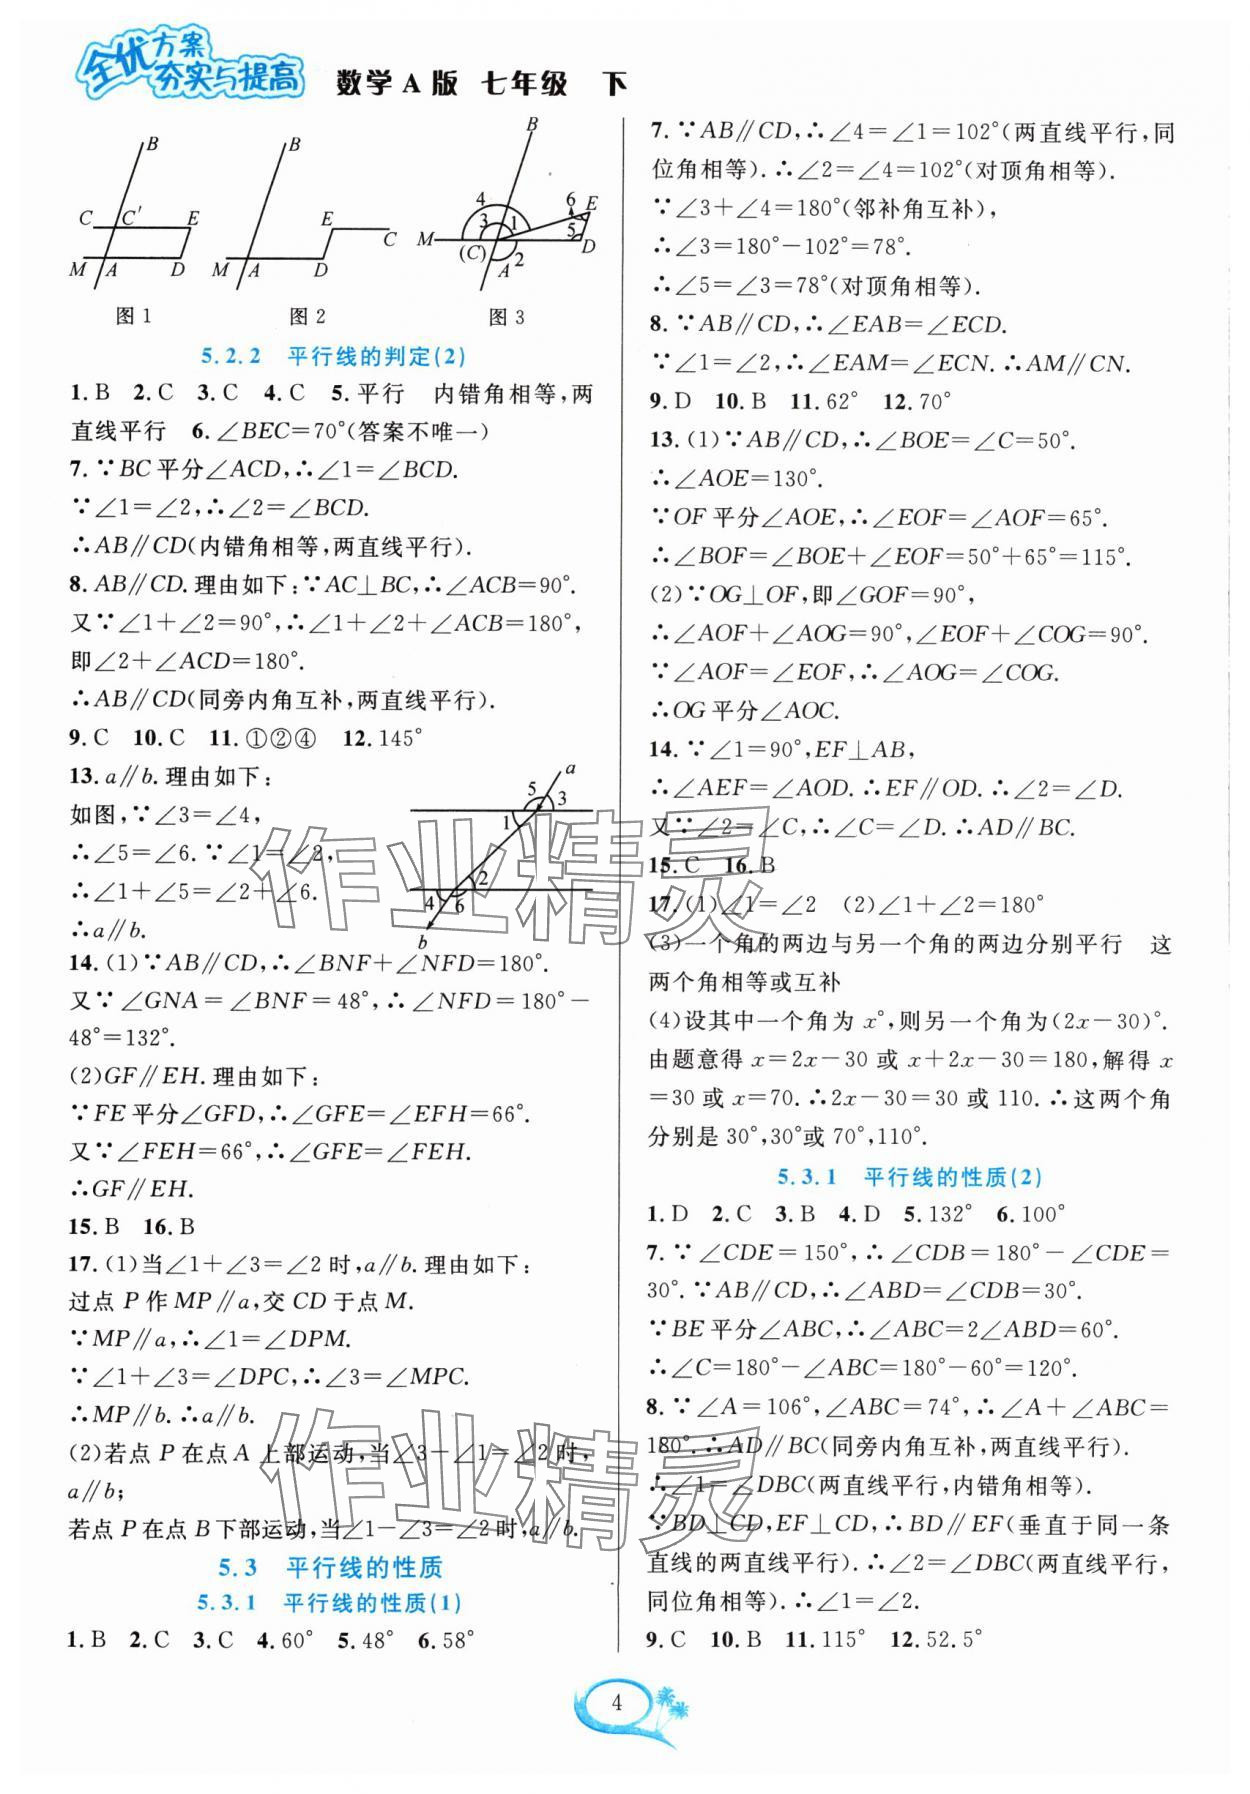 全优方案
夯实与提高
数学A版 七年级 下
B
C
C′
E
M
A
D
图1
B
E
C
M
A
D
图2
B
4
3
1
6
E
5
M
(C)
2
D
A
图3
5.2.2 平行线的判定(2)
1.B 2.C 3.C 4.C 5.平行 内错角相等,两
直线平行 6.∠BEC=70°(答案不唯一)
7.∵BC平分∠ACD,∴∠1=∠BCD.
∵∠1=∠2,∴∠2=∠BCD.
∴AB∥CD(内错角相等,两直线平行).
8.AB∥CD.理由如下:∵AC⊥BC,∴∠ACB=90°.
又∵∠1+∠2=90°,∴∠1+∠2+∠ACB=180°,
即∠2+∠ACD=180°.
∴AB∥CD(同旁内角互补,两直线平行).
9.C 10.C 11.①②④ 12.145°
13.a∥b.理由如下:
如图,∵∠3=∠4,
∴∠5=∠6.∵∠1=∠2,
∴∠1+∠5=∠2+∠6.
∴a∥b.
a
5
3
1
2
4
6
b
14.(1)∵AB∥CD,∴∠BNF+∠NFD=180°.
又∵∠GNA=∠BNF=48°,∴∠NFD=180°-
48°=132°.
(2)GF∥EH.理由如下:
∵FE平分∠GFD,∴∠GFE=∠EFH=66°.
又∵∠FEH=66°,∴∠GFE=∠FEH.
∴GF∥EH.
15.B 16.B
17.(1)当∠1+∠3=∠2时,a∥b.理由如下:
过点P作MP∥a,交CD于点M.
∵MP∥a,∴∠1=∠DPM.
∵∠1+∠3=∠DPC,∴∠3=∠MPC.
∴MP∥b.∴a∥b.
(2)若点P在点A上部运动,当∠3-∠1=∠2时,
a∥b;
若点P在点B下部运动,当∠1-∠3=∠2时,a∥b.
5.3 平行线的性质
5.3.1 平行线的性质(1)
1.B 2.C 3.C 4.60° 5.48° 6.58°
7.∵AB∥CD,∴∠4=∠1=102°(两直线平行,同
位角相等).∴∠2=∠4=102°(对顶角相等).
∵∠3+∠4=180°(邻补角互补),
∴∠3=180°-102°=78°.
∴∠5=∠3=78°(对顶角相等).
8.∵AB∥CD,∴∠EAB=∠ECD.
∵∠1=∠2,∴∠EAM=∠ECN.∴AM∥CN.
9.D 10.B 11.62° 12.70°
13.(1)∵AB∥CD,∴∠BOE=∠C=50°.
∴∠AOE=130°.
∵OF平分∠AOE,∴∠EOF=∠AOF=65°.
∴∠BOF=∠BOE+∠EOF=50°+65°=115°.
(2)∵OG⊥OF,即∠GOF=90°,
∴∠AOF+∠AOG=90°,∠EOF+∠COG=90°.
∵∠AOF=∠EOF,∴∠AOG=∠COG.
∴OG平分∠AOC.
14.∵∠1=90°,EF⊥AB,
∴∠AEF=∠AOD.∴EF∥OD.∴∠2=∠D.
又∵∠2=∠C,∴∠C=∠D.∴AD∥BC.
15.C 16.B
17.(1)∠1=∠2 (2)∠1+∠2=180°
(3)一个角的两边与另一个角的两边分别平行 这
两个角相等或互补
(4)设其中一个角为x°,则另一个角为(2x-30)°.
由题意得x=2x-30或x+2x-30=180,解得x
=30或x=70.∴2x-30=30或110.∴这两个角
分别是30°,30°或70°,110°.
5.3.1 平行线的性质(2)
1.D 2.C 3.B 4.D 5.132° 6.100°
7.∵∠CDE=150°,∴∠CDB=180°-∠CDE=
30°.∵AB∥CD,∴∠ABD=∠CDB=30°.
∵BE平分∠ABC,∴∠ABC=2∠ABD=60°.
∴∠C=180°-∠ABC=180°-60°=120°.
8.∵∠A=106°,∠ABC=74°,∴∠A+∠ABC=
180°.∴AD∥BC(同旁内角互补,两直线平行).
∴∠1=∠DBC(两直线平行,内错角相等).
∵BD⊥CD,EF⊥CD,∴BD∥EF(垂直于同一条
直线的两直线平行).∴∠2=∠DBC(两直线平行,
同位角相等).∴∠1=∠2.
9.C 10.B 11.115° 12.52.5°
作业精灵
作业精灵
4